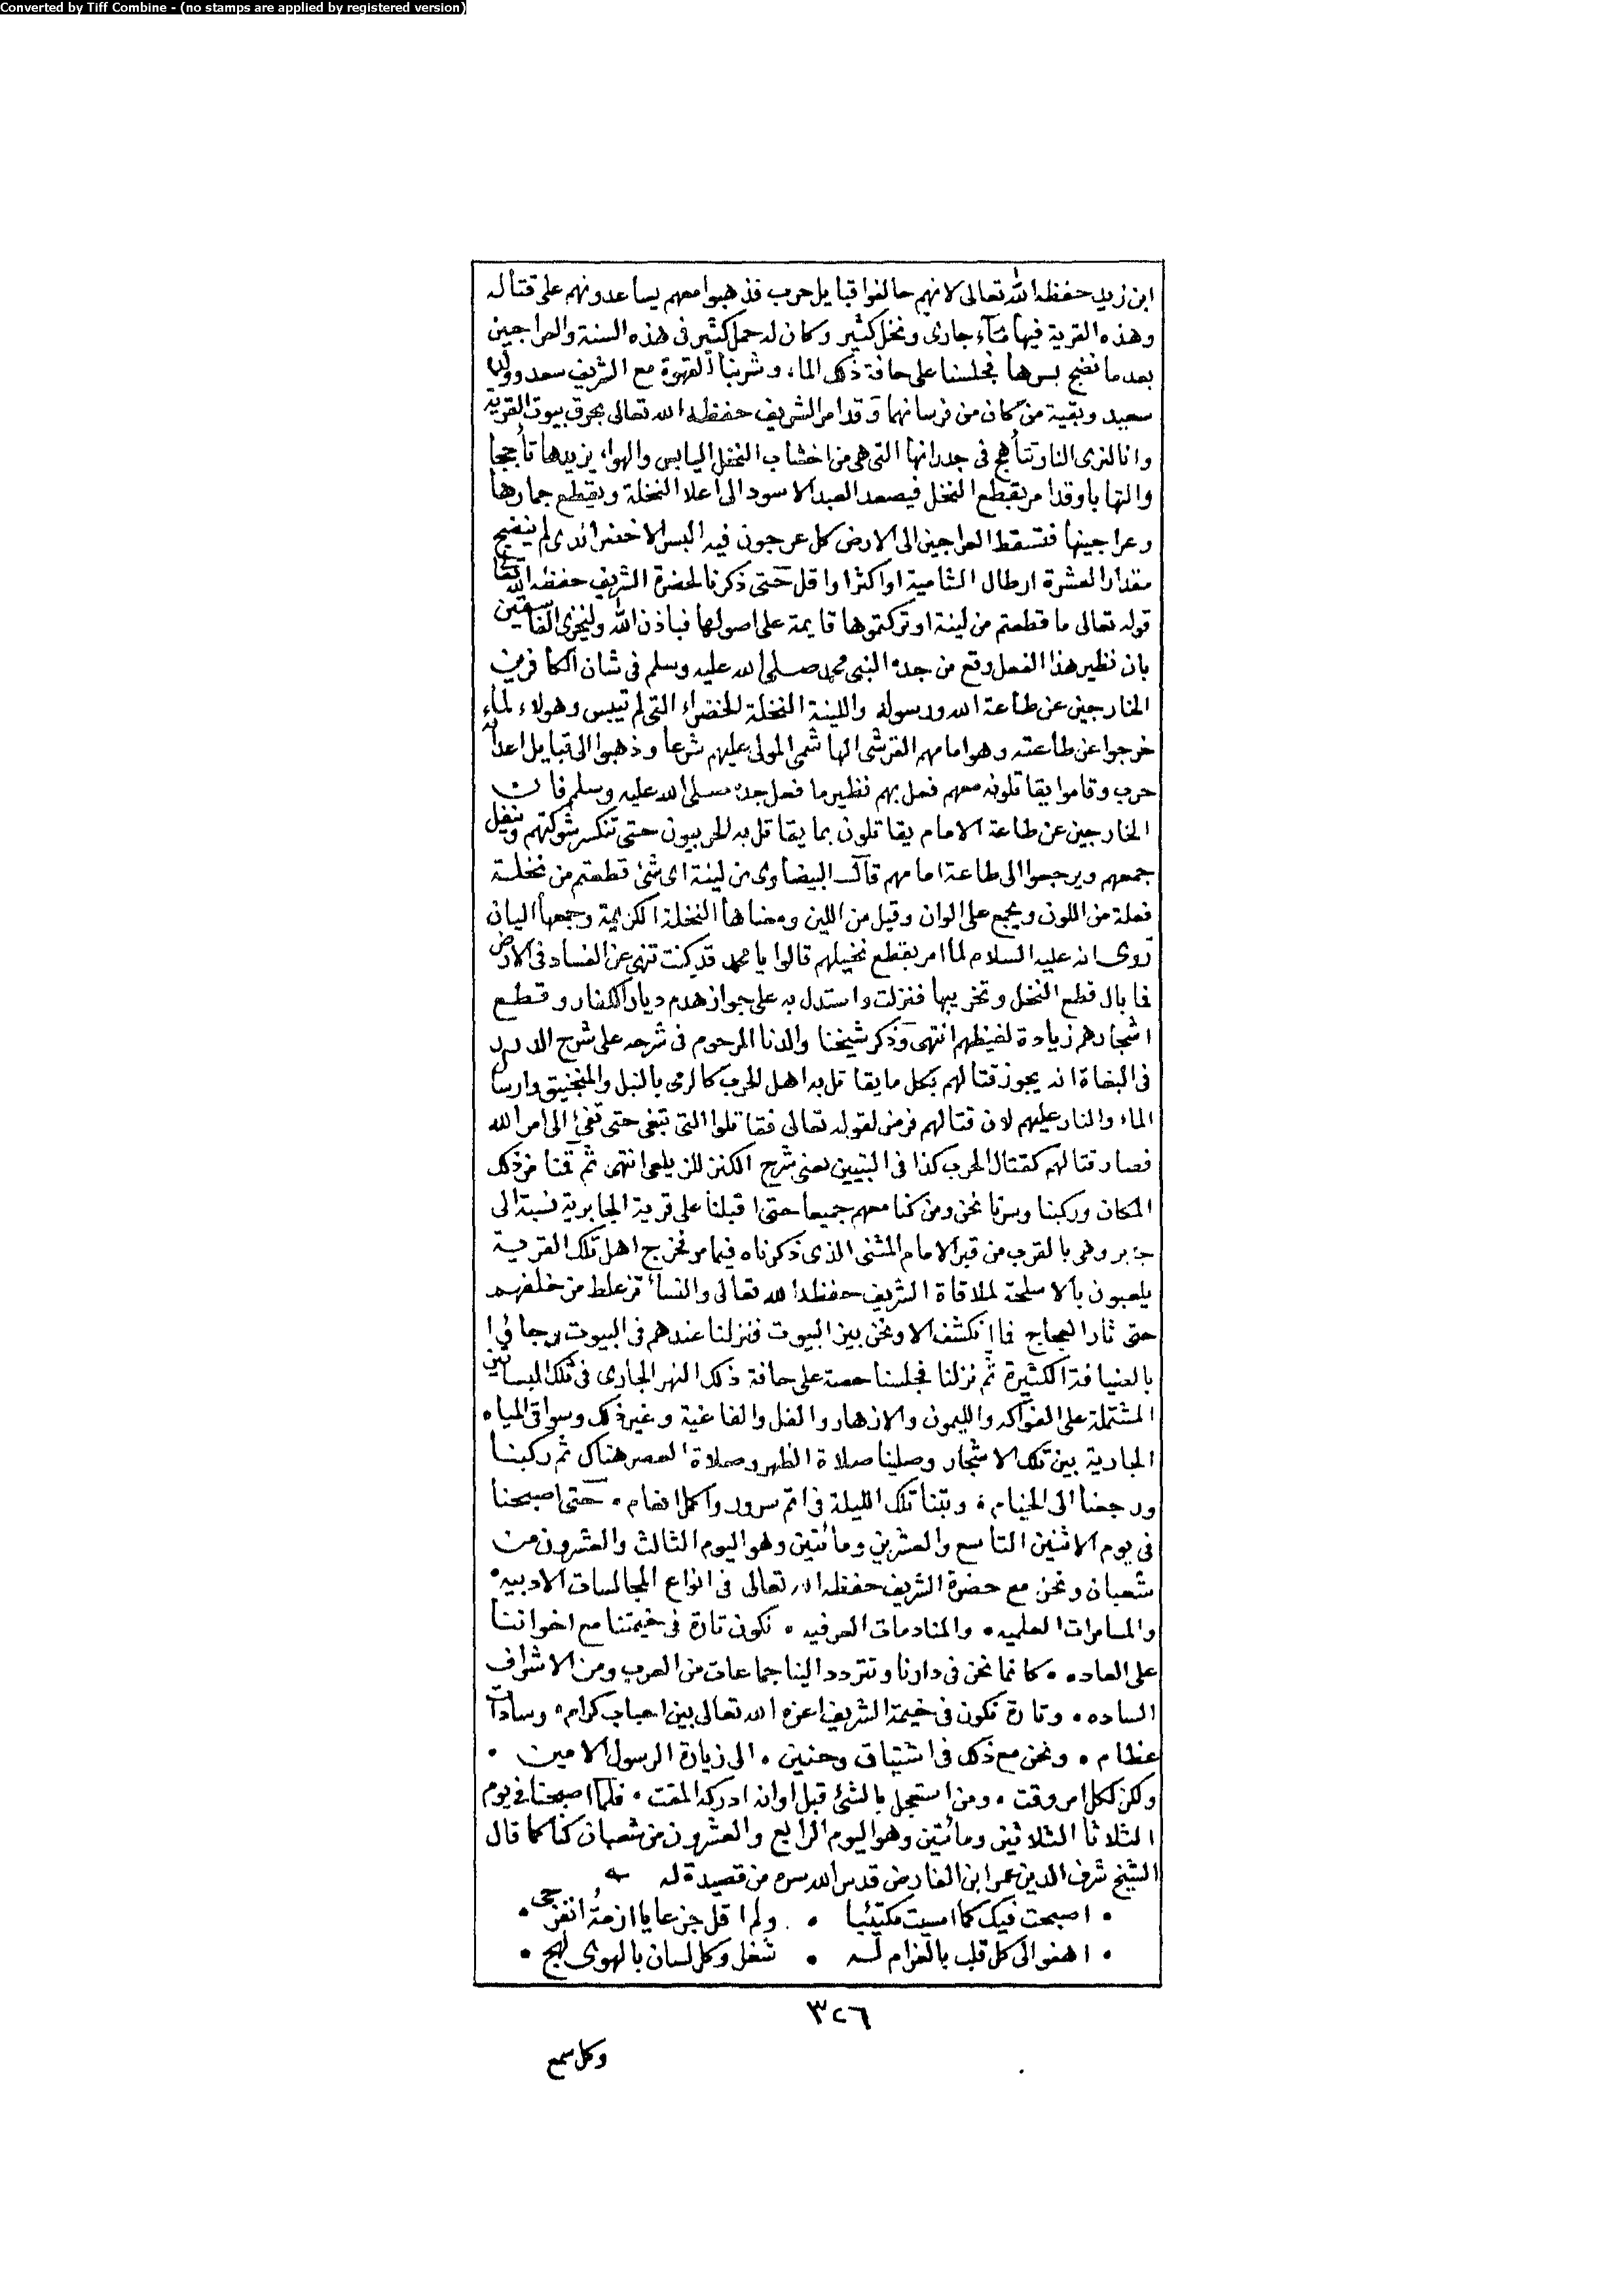 Converted by Tiff Combine - (no stamps are applied by registered version)
ابن زيد حفظه الله تعالى لانهم حالفوا قبايل حرب فذهبوا معهم يساعدونهم على قتاله
وهذه القرية فيها مآء جارى ونخل كثير وكان له حمل كثير فى هذه السنة والعراجين
بعد ما نضج بسرها فجلسنا على حافة ذلك الماء وشربنا القهوة مع الشريف سعد وولده
سعيد وبقية من كان من فرسانهما وقد امر الشريف حفظه الله تعالى بحرق بيوت القرية
وانا لنرى النار تتأجج فى جدرانها التى هى من اخشاب النخل اليابس والهواء يزيدها تأججا
والتهابا وقد امر بقطع النخل فيصعد العبد الاسود الى اعلا النخلة ويقطع جمارها
وعراجينها فتسقط العراجين الى الارض كل عرجون فيه البسر الاخضر الذى لم ينضج
مقدار العشرة ارطال الشامية او اكثر او اقل حتى ذكرنا لحضرة الشريف حفظه الله تعا
قوله تعالى ما قطعتم من لينة او تركتموها قايمة على اصولها فباذن الله وليخزى الفاسقين
بان نظير هذا الفعل وقع من جده النبى محمد صلى الله عليه وسلم فى شان الكافرين
الخارجين عن طاعة الله ورسوله واللينة النخلة الخضراء التى لم تيبس وهولاء لما
خرجوا عن طاعته وهو امامهم القرشى الهاشمى المولى عليهم شرعا وذهبوا الى قبايل اعدائه
حرب وقاموا يقاتلونه معهم فعل بهم نظير ما فعل جده صلى الله عليه وسلم فان
الخارجين عن طاعة الامام يقاتلون بما يقاتل به الحربيون حتى تنكسر شوكتهم وينفل
جمعهم ويرجعوا الى طاعة امامهم قال البيضاوى من لينة اى شئ قطعتم من نخلة
فعلة من اللون ويجمع على الوان وقيل من اللين ومعناها النخلة الكريمة وجمعها اليان
روى انه عليه السلام لما امر بقطع نخيلهم قالوا يا محمد قد كنت تنهى عن الفساد فى الارض
فما بال قطع النخل وتخريبها فنزلت واستدل به على جواز هدم ديار الكفار وقطع
اشجارهم زيادة لغيظهم انتهى وذكر شيخنا والدنا المرحوم فى شرحه على شرح الدرر
فى البغاة انه يجوز قتالهم بكل ما يقاتل به اهل الحرب كالرمى بالنبل والمنجنيق وارسال
الماء والنار عليهم لان قتالهم فرض لقوله تعالى فقاتلوا التى تبغى حتى تفئ الى امر الله
فصار قتالهم كقتال الحرب كذا فى التبيين يعنى شرح الكنز للزيلعى انتهى ثم قمنا من ذلك
المكان وركبنا وسرنا نحن ومن كنا معهم جميعا حتى اقبلنا على قرية الجابرية نسبة الى
جابر وهى بالقرب من قبر الامام المثنى الذى ذكرناه فيما مر فخرج اهل تلك القرية
يلعبون بالاسلحة لملاقاة الشريف حفظه الله تعالى والنسآ تزغلط من خلفهم
حتى ثار العجاج فما انكشف الا ونحن بين البيوت فنزلنا عندهم فى البيوت وجاؤا
بالضيافة الكثيرة ثم نزلنا فجلسنا حصة على حافة ذلك النهر الجارى فى تلك البساتين
المشتملة على الفواكه والليمون والازهار والفل والفاغية وغير ذلك وسواقى المياه
الجارية بين تلك الاشجار وصلينا صلاة الظهر وصلاة العصر هناك ثم ركبنا
ورجعنا الى الخيام ۰ وبتنا تلك الليلة فى اتم سرور واكمل انعام ۰ حتى اصبحنا
فى يوم الاثنين التاسع والعشرين ومائتين وهو اليوم الثالث والعشرون من
شعبان ونحن مع حضرة الشريف حفظه الله تعالى فى انواع المجالسات الادبيه ۰
والمسامرات العلميه ۰ والمنادمات العرفيه ۰ نكون تارة فى خيمتنا مع اخواننا
على العاده ۰ كانما نحن فى دارنا وتتردد الينا جماعات من العرب ومن الاشراف
الساده ۰ وتارة نكون فى خيمة الشريف اعزه الله تعالى بين احباب كرام ۰ وسادات
عظام ۰ ونحن مع ذلك فى اشتياق وحنين ۰ الى زيارة الرسول الامين ۰
ولكن لكل امر وقت ۰ ومن استعجل بالشئ قبل اوانه ادركه المقت ۰ فلما اصبحنا فى يوم
الثلاثا الثلاثين ومائتين وهو اليوم الرابع والعشرون من شعبان كنا كما قال
الشيخ شرف الدين عمر ابن الفارض قدس الله سره من قصيدة له
۰ اصبحت فيك كما امسيت مكتئبا ۰ ولم اقل جزعا يا ازمة انفرجى ۰
۰ اهفو الى كل قلب بالغرام له ۰ شغل وكل لسان بالهوى لهج ۰
٣٢٦
وكل سمع